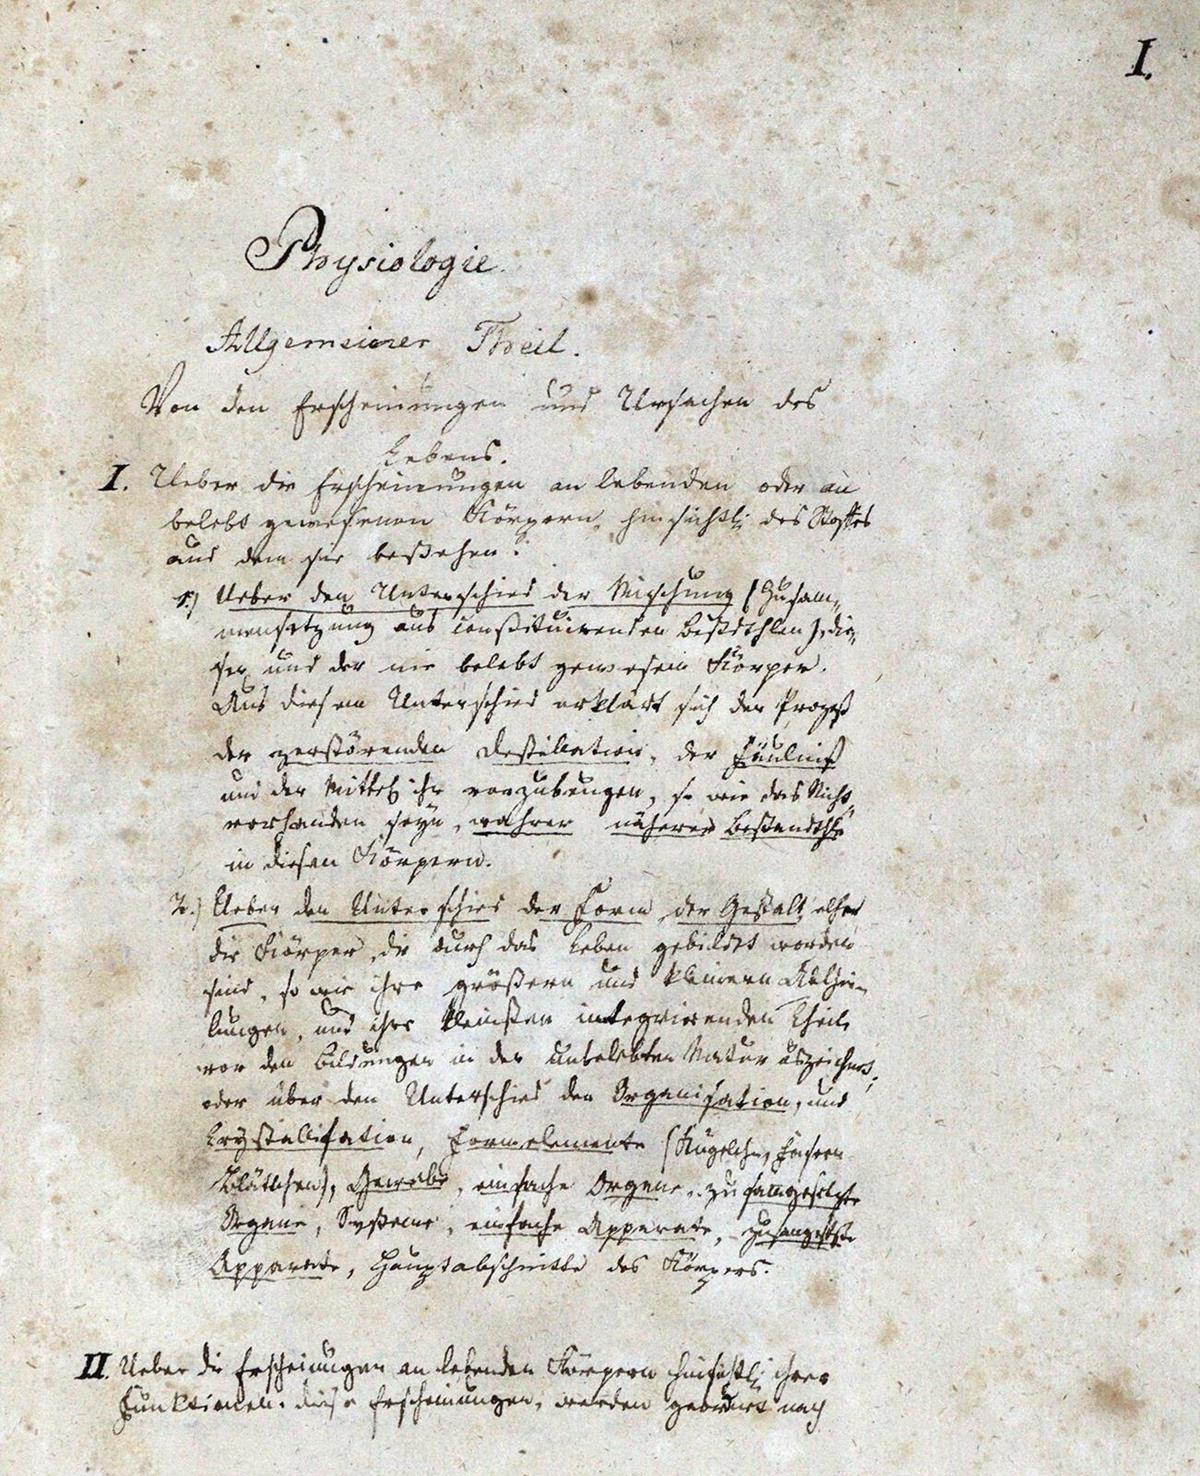 I.
Physiologie.
Allgemeiner Theil.
Von den Erscheinungen und Ursachen des
Lebens.
I. Ueber die Erscheinungen an lebenden oder an
belebt gewesenen Körpern, hinsichtl. des Stoffes
aus dem sie bestehen.
1.) Ueber den Unterschied der Mischung (Zusam-
mensetzung aus constituirenden Bestdthlen), die-
ser und der nie belebt gewesenen Körper.
Aus diesem Unterschied erklärt sich der Prozeß
der zerstörenden Destillation, der Fäulniß
und der Mittel ihr vorzubeugen, so wie das Nicht-
vorhanden seyn, wahrer näherer Bestandthle
in diesen Körpern.
2.) Ueber den Unterschied der Form, der Gestalt, welcher
die Körper, die durch das Leben gebildet worden
sind, so wie ihre größern und kleinern Abthei-
lungen, und ihre kleinsten integrirenden Theile
vor den Bildungen in der unbelebten Natur auszeichnet,
oder über den Unterschied der Organisation, und
Crystallisation, Formelemente (Kügelchen, Fasern
Blättchen), Gewebe, einfache Organe, zusamgesetzte
Organe, Systeme, einfache Apparate, zusamgesetzte
Apparate, Hauptabschnitte des Körpers.
II. Ueber die Erscheinungen an lebenden Körpern hinsichtl. ihrer
Funktionen. diese Erscheinungen, werden geordnet nach